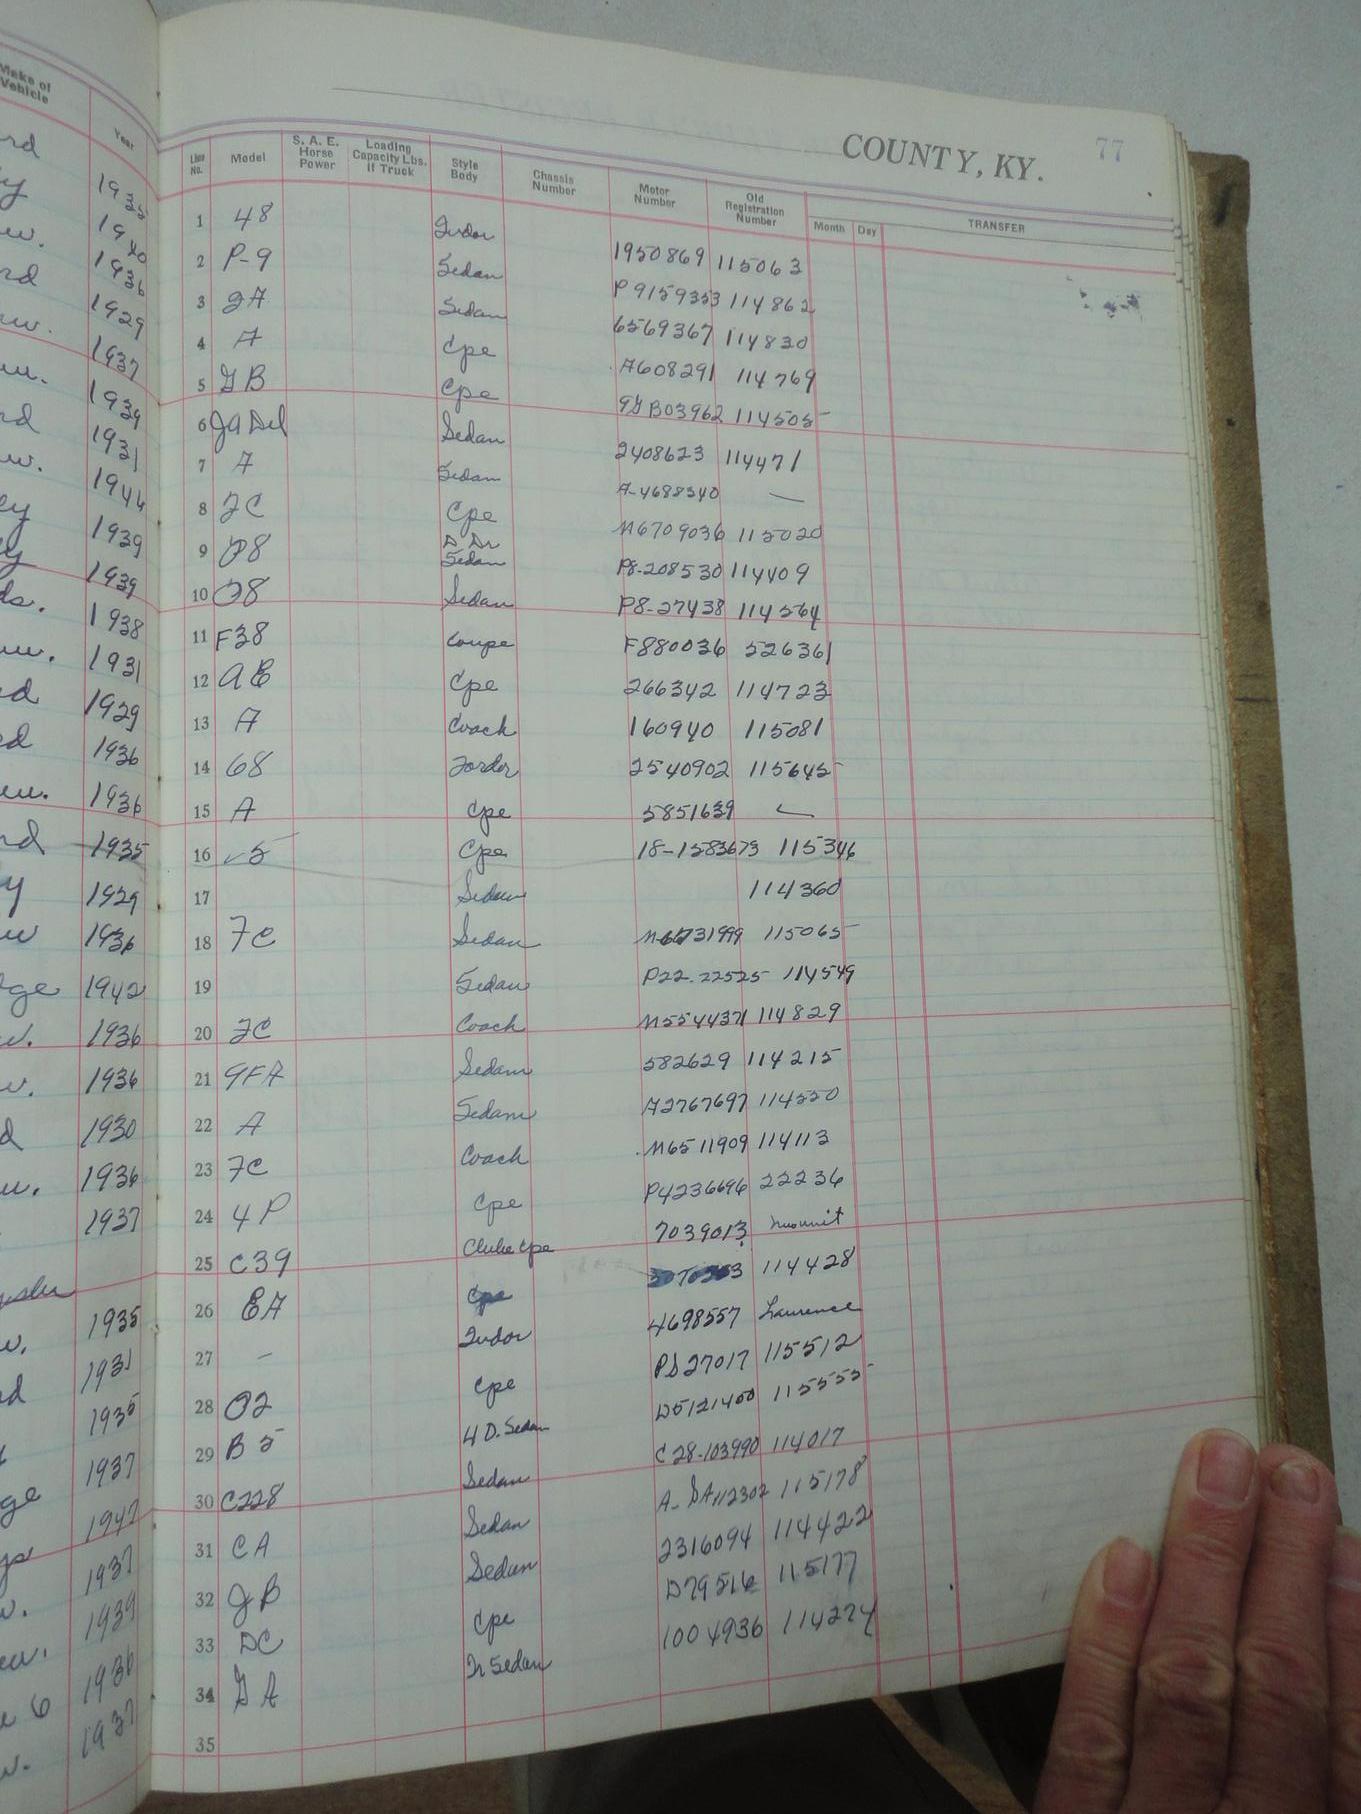 COUNTY, KY. 77
Make of Vehicle Year
Line No. Model S. A. E. Horse Power Loading Capacity Lbs. if Truck Style Body Chassis Number Motor Number Old Registration Number TRANSFER
Month Day
1935 1 48 Tudor 1950869 115063
1940 2 P-9 Sedan P9159353 114862
1936 3 Sedan 6569367 114830
1929 4 A Cpe A608291 114769
1937 5 GB Cpe 114505
1939 6 Sedan 2408623 114471
1931 7 A Sedan A-4688340 —
8 Cpe M6709036 115020
1939 9 08 Sedan P8-208530 114409
1939 10 08 Sedan P8-27438 114564
1938 11 F38 Coupe F880036 526361
1931 12 AE Cpe 266342 114723
1929 13 A Coach 160940 115081
1936 14 68 Fordor 2540902 115645
1936 15 A Cpe 5851639 —
1935 16 Cpe 115346
1929 17 Sedan 114360
1936 18 FC Sedan 115065
1942 19 Sedan P22-22525 114549
1936 20 FC Coach M554437 114829
1936 21 9FA Sedan 582629 114215
1930 22 A Sedan A2767697 114550
1936 23 FC Coach M6511909 114113
1937 24 4P Cpe P4236696 22236
25 C39 Clube Cpe 7039013
1935 26 EA Cpe 114428
1931 27 – Tudor 4698557 Lawrence
1935 28 02 Cpe 115512
1937 29 B5 4 D. Sedan D5121400 115555
1947 30 C228 Sedan C28-103990 114017
1937 31 CA Sedan 115178
1939 32 GB Sedan 2316094 114422
1936 33 DC Cpe D79516 115177
1937 34 GA Sedan 1004936 114274
35